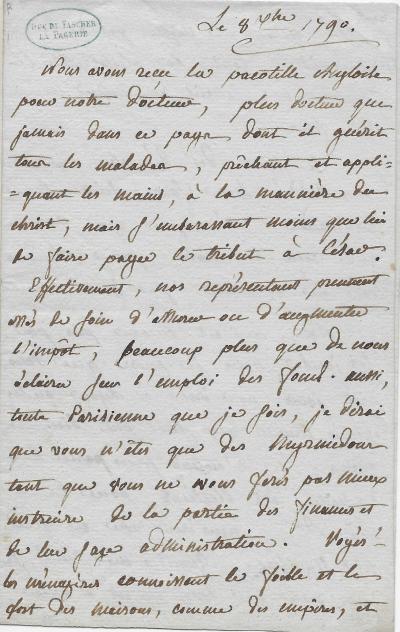 DUC DE TASCHER
LA PAGERIE
Le 8 Xbre 1790.
Nous avons reçu la pacotille Angloise
pour notre docteur, plus docteur que
jamais dans ce pays dont il guérit
tous les malades, prêchant et appli=
=quant les mains, à la mannière du
christ, mais s'embarassant moins que lui
de faire payer le tribut à César.
Effectivement, nos représentant prennent
assés de soin d'asseoir ou d'augmenter
l'impôt, beaucoup plus que de nous
éclairer sur l'emploi des fonds. aussi,
toute Parisienne que je sois, je dirai
que vous n'êtes que des Myrmidons
tant que vous ne nous ferés pas mieux
instruire de la partie des finances et
de leur sage administration. Voyés!
les ménagères connoissent le foible et le
fort des maisons, comme des empires, et